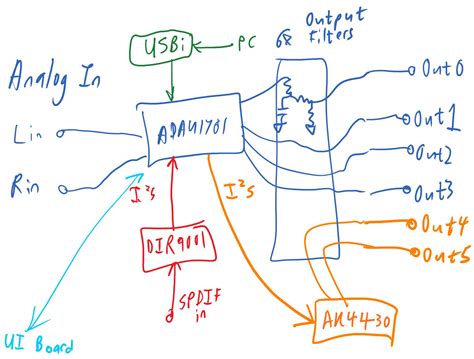 Output
6x Filters
USBi
PC
Analog In
Out0
ADAU1701
Out1
Lin
Out2
Rin
I²S
I²S
Out3
DIR9001
Out4
Out5
SPDIF
in
AK4430
UI Board